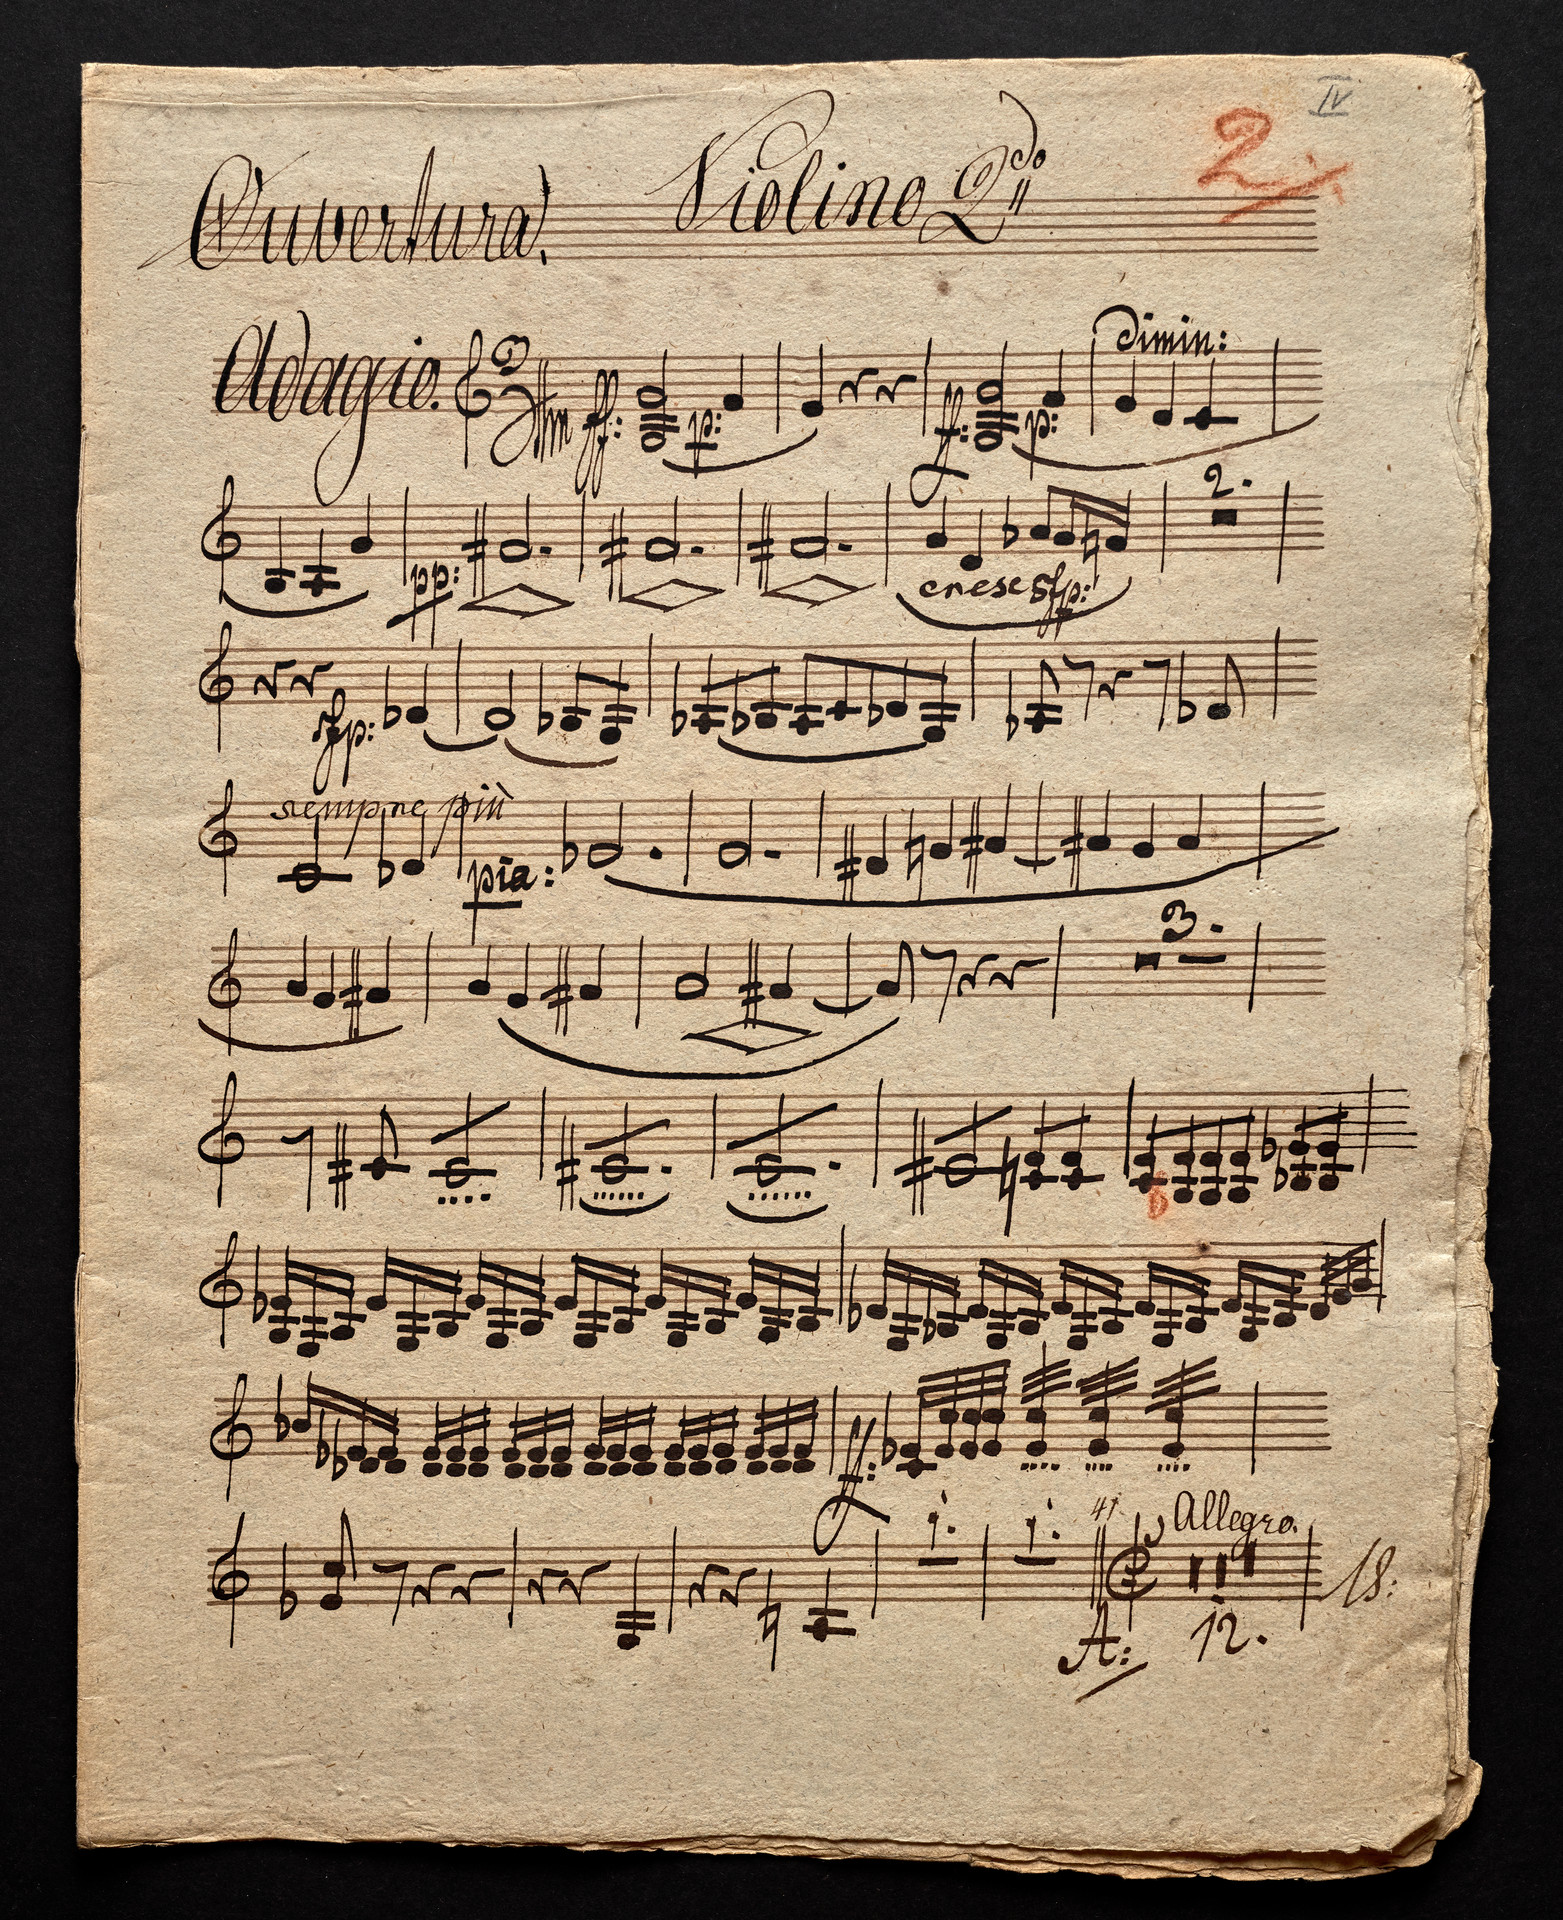 IV
2
Ouvertura. Violino 2do
Adagio. 3 ff: p: ff: p: dimin:
pp: cresc sfp: 2.
sfp:
sempre più pia:
3.
ff:
1. 1. 41 Allegro.
A: 12. 18: